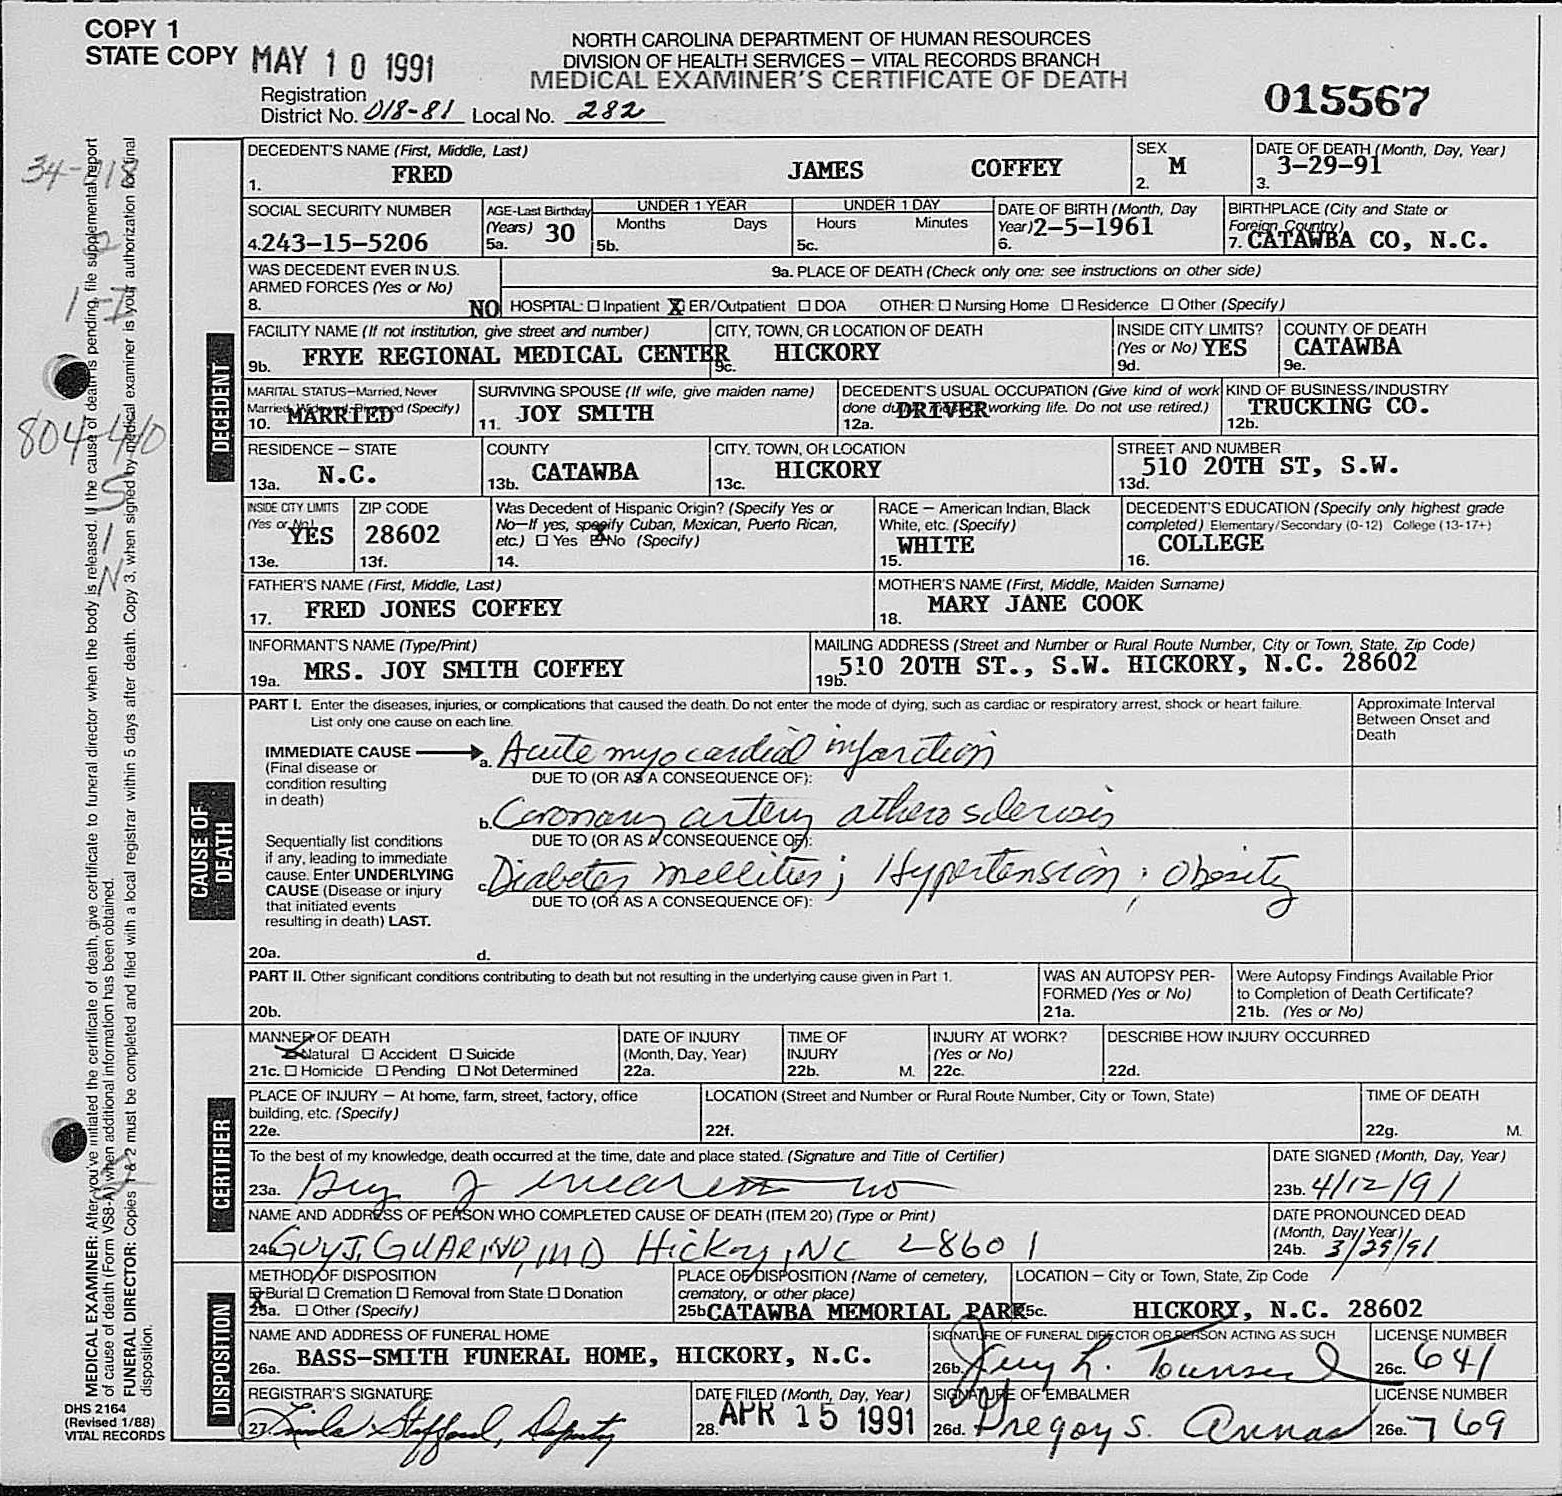 COPY 1
STATE COPY MAY 10 1991
NORTH CAROLINA DEPARTMENT OF HUMAN RESOURCES
DIVISION OF HEALTH SERVICES – VITAL RECORDS BRANCH
MEDICAL EXAMINER'S CERTIFICATE OF DEATH
Registration
District No. 018-81 Local No. 282
015567
DECEDENT'S NAME (First, Middle, Last)
1. FRED JAMES COFFEY
SEX
2. M
DATE OF DEATH (Month, Day, Year)
3. 3-29-91
SOCIAL SECURITY NUMBER
4. 243-15-5206
AGE-Last Birthday
(Years) 30
5a.
UNDER 1 YEAR
Months Days
5b.
UNDER 1 DAY
Hours Minutes
5c.
DATE OF BIRTH (Month, Day
Year) 2-5-1961
6.
BIRTHPLACE (City and State or
Foreign Country)
7. CATAWBA CO, N.C.
WAS DECEDENT EVER IN U.S.
ARMED FORCES (Yes or No)
8. NO
9a. PLACE OF DEATH (Check only one: see instructions on other side)
HOSPITAL: ☐ Inpatient X ER/Outpatient ☐ DOA OTHER: ☐ Nursing Home ☐ Residence ☐ Other (Specify)
FACILITY NAME (If not institution, give street and number)
9b. FRYE REGIONAL MEDICAL CENTER
CITY, TOWN, OR LOCATION OF DEATH
9c. HICKORY
INSIDE CITY LIMITS?
(Yes or No) YES
9d.
COUNTY OF DEATH
CATAWBA
9e.
MARITAL STATUS–Married, Never
Married, Widowed, Divorced (Specify)
10. MARRIED
SURVIVING SPOUSE (If wife, give maiden name)
11. JOY SMITH
DECEDENT'S USUAL OCCUPATION (Give kind of work
done during most of working life. Do not use retired.)
12a. DRIVER
KIND OF BUSINESS/INDUSTRY
TRUCKING CO.
12b.
RESIDENCE – STATE
13a. N.C.
COUNTY
13b. CATAWBA
CITY, TOWN, OR LOCATION
13c. HICKORY
STREET AND NUMBER
510 20TH ST, S.W.
13d.
INSIDE CITY LIMITS
(Yes or No) YES
13e.
ZIP CODE
28602
13f.
Was Decedent of Hispanic Origin? (Specify Yes or
No–If yes, specify Cuban, Mexican, Puerto Rican,
etc.) ☐ Yes X No (Specify)
14.
RACE – American Indian, Black
White, etc. (Specify)
WHITE
15.
DECEDENT'S EDUCATION (Specify only highest grade
completed) Elementary/Secondary (0-12) College (13-17+)
COLLEGE
16.
FATHER'S NAME (First, Middle, Last)
17. FRED JONES COFFEY
MOTHER'S NAME (First, Middle, Maiden Surname)
18. MARY JANE COOK
INFORMANT'S NAME (Type/Print)
19a. MRS. JOY SMITH COFFEY
MAILING ADDRESS (Street and Number or Rural Route Number, City or Town, State, Zip Code)
19b. 510 20TH ST., S.W. HICKORY, N.C. 28602
PART I. Enter the diseases, injuries, or complications that caused the death. Do not enter the mode of dying, such as cardiac or respiratory arrest, shock or heart failure.
List only one cause on each line.
Approximate Interval
Between Onset and
Death
IMMEDIATE CAUSE
(Final disease or
condition resulting
in death)
a. Acute myocardial infarction
DUE TO (OR AS A CONSEQUENCE OF):
b. Coronary artery atherosclerosis
DUE TO (OR AS A CONSEQUENCE OF):
Sequentially list conditions
if any, leading to immediate
cause. Enter UNDERLYING
CAUSE (Disease or injury
that initiated events
resulting in death) LAST.
c. Diabetes mellitus; Hypertension; Obesity
DUE TO (OR AS A CONSEQUENCE OF):
20a. d.
PART II. Other significant conditions contributing to death but not resulting in the underlying cause given in Part 1.
20b.
WAS AN AUTOPSY PER-
FORMED (Yes or No)
21a.
Were Autopsy Findings Available Prior
to Completion of Death Certificate?
21b. (Yes or No)
MANNER OF DEATH
Natural ☐ Accident ☐ Suicide
21c. ☐ Homicide ☐ Pending ☐ Not Determined
DATE OF INJURY
(Month, Day, Year)
22a.
TIME OF
INJURY
22b. M.
INJURY AT WORK?
(Yes or No)
22c.
DESCRIBE HOW INJURY OCCURRED
22d.
PLACE OF INJURY – At home, farm, street, factory, office
building, etc. (Specify)
22e.
LOCATION (Street and Number or Rural Route Number, City or Town, State)
22f.
TIME OF DEATH
22g. M.
To the best of my knowledge, death occurred at the time, date and place stated. (Signature and Title of Certifier)
23a.
DATE SIGNED (Month, Day, Year)
23b. 4/12/91
NAME AND ADDRESS OF PERSON WHO COMPLETED CAUSE OF DEATH (ITEM 20) (Type or Print)
24a. GUY J. GUARINO, MD Hickory, NC 28601
DATE PRONOUNCED DEAD
(Month, Day, Year)
24b. 3/29/91
METHOD OF DISPOSITION
X Burial ☐ Cremation ☐ Removal from State ☐ Donation
25a. ☐ Other (Specify)
PLACE OF DISPOSITION (Name of cemetery,
crematory, or other place)
25b. CATAWBA MEMORIAL PARK
LOCATION – City or Town, State, Zip Code
25c. HICKORY, N.C. 28602
NAME AND ADDRESS OF FUNERAL HOME
26a. BASS-SMITH FUNERAL HOME, HICKORY, N.C.
SIGNATURE OF FUNERAL DIRECTOR OR PERSON ACTING AS SUCH
26b. Jerry L. Townsend
LICENSE NUMBER
26c. 641
REGISTRAR'S SIGNATURE
27. Linda Stafford, Deputy
DATE FILED (Month, Day, Year)
28. APR 15 1991
SIGNATURE OF EMBALMER
26d. Gregory S. Annas
LICENSE NUMBER
26e. 769
DECEDENT
CAUSE OF
DEATH
CERTIFIER
DISPOSITION
MEDICAL EXAMINER: After you've initiated the certificate of death, give certificate to funeral director when the body is released. If the cause of death is pending, file supplemental report
of cause of death (Form VS8-A) when additional information has been obtained.
FUNERAL DIRECTOR: Copies 1 & 2 must be completed and filed with a local registrar within 5 days after death. Copy 3, when signed by medical examiner is your authorization for final
disposition.
34-018
2
1-I
804-410
5
1
N
DHS 2164
(Revised 1/88)
VITAL RECORDS